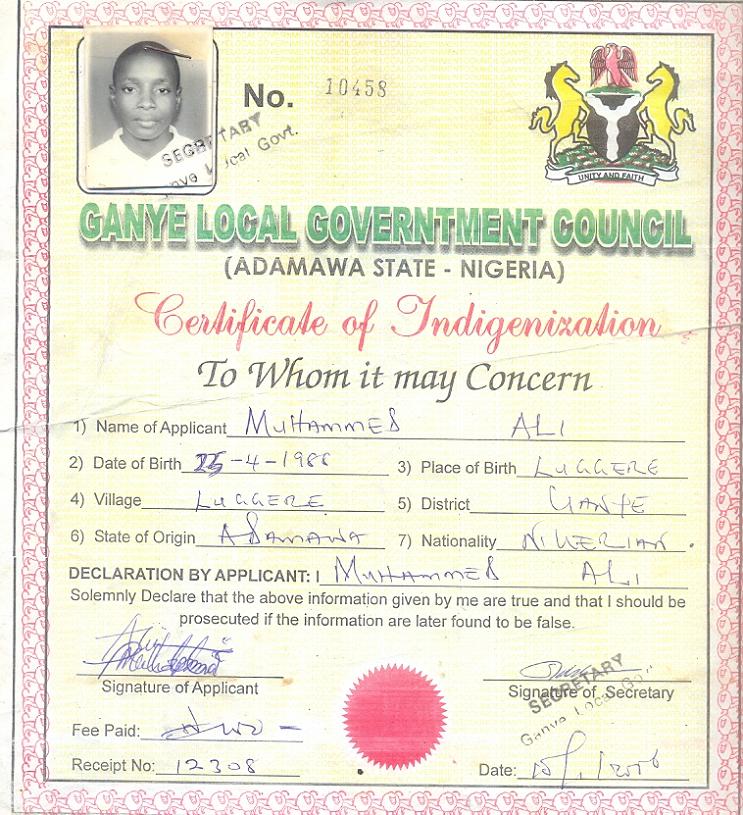 No. 10458
SECRETARY
Local Govt.
UNITY AND FAITH
GANYE LOCAL GOVERNTMENT COUNCIL
(ADAMAWA STATE - NIGERIA)
Certificate of Indigenization
To Whom it may Concern
1) Name of Applicant MUHAMMED ALI
2) Date of Birth -4-1988 3) Place of Birth LUGGERE
4) Village LUGGERE 5) District GANYE
6) State of Origin ADAMAWA 7) Nationality NIGERIAN.
DECLARATION BY APPLICANT: I MUHAMMED ALI
Solemnly Declare that the above information given by me are true and that I should be
prosecuted if the information are later found to be false.
Signature of Applicant Signature of Secretary
SECRETARY
Ganye Local
Fee Paid:
Receipt No: 12308 Date: